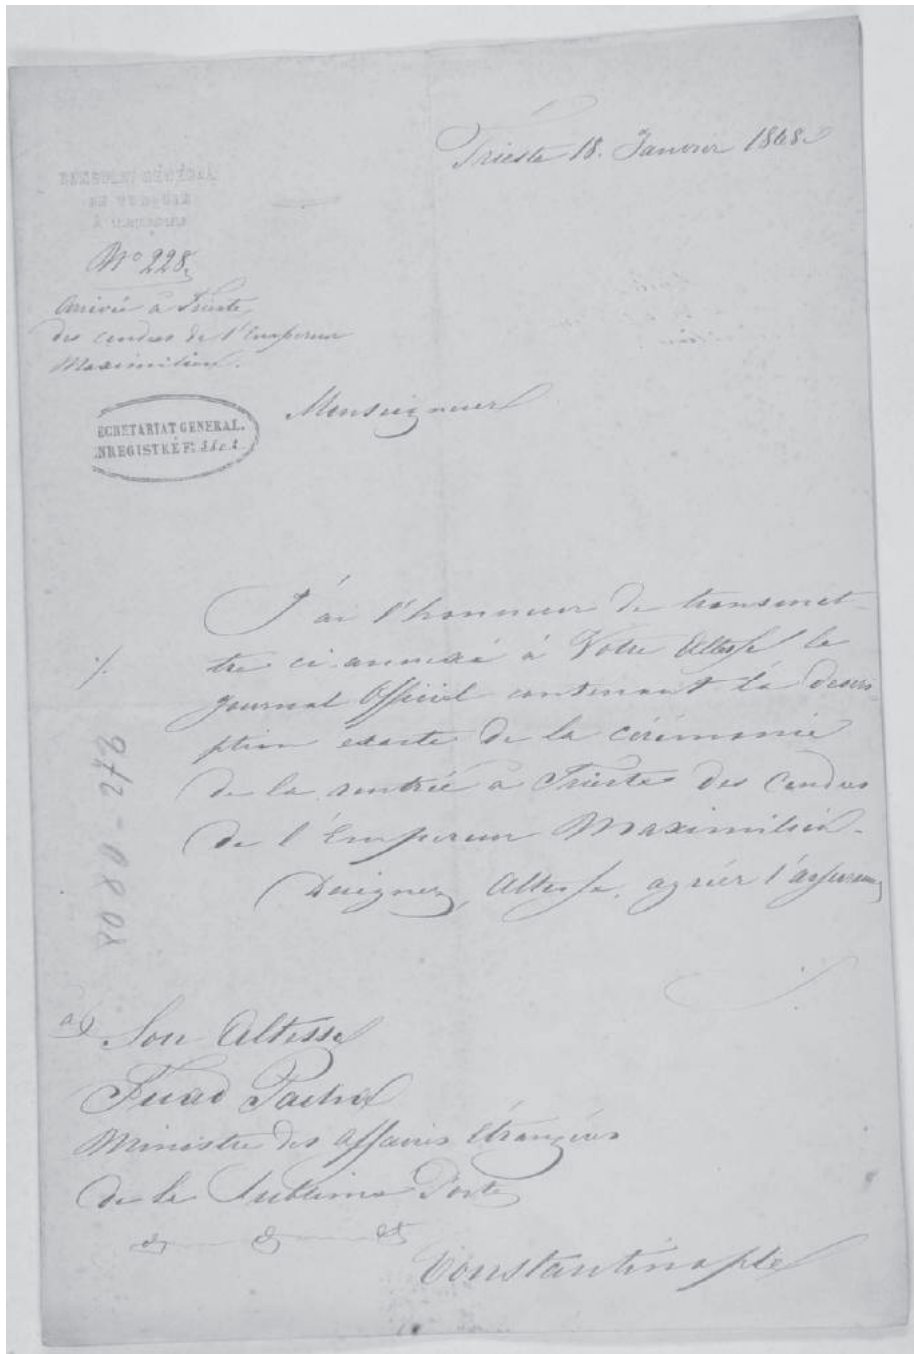 Trieste 18. Janvier 1868
CONSULAT GÉNÉRAL
DE TURQUIE
À
No 228.
Arrivée à Trieste
des cendres de l'Empereur
Maximilien.
SECRETARIAT GENERAL.
ENREGISTRÉ
Monseigneur
J'ai l'honneur de transmet-
tre ci annexé à Votre Altesse le
journal Officiel contenant la descri-
ption exacte de la cérémonie
de la rentrée à Trieste des Cendres
de l'Empereur Maximilien.
Daignez, Altesse, agréer l'assurance
./.
à Son Altesse
Fuad Pacha
Ministre des Affaires Étrangères
de la Sublime Porte
&c &c &c
Constantinople